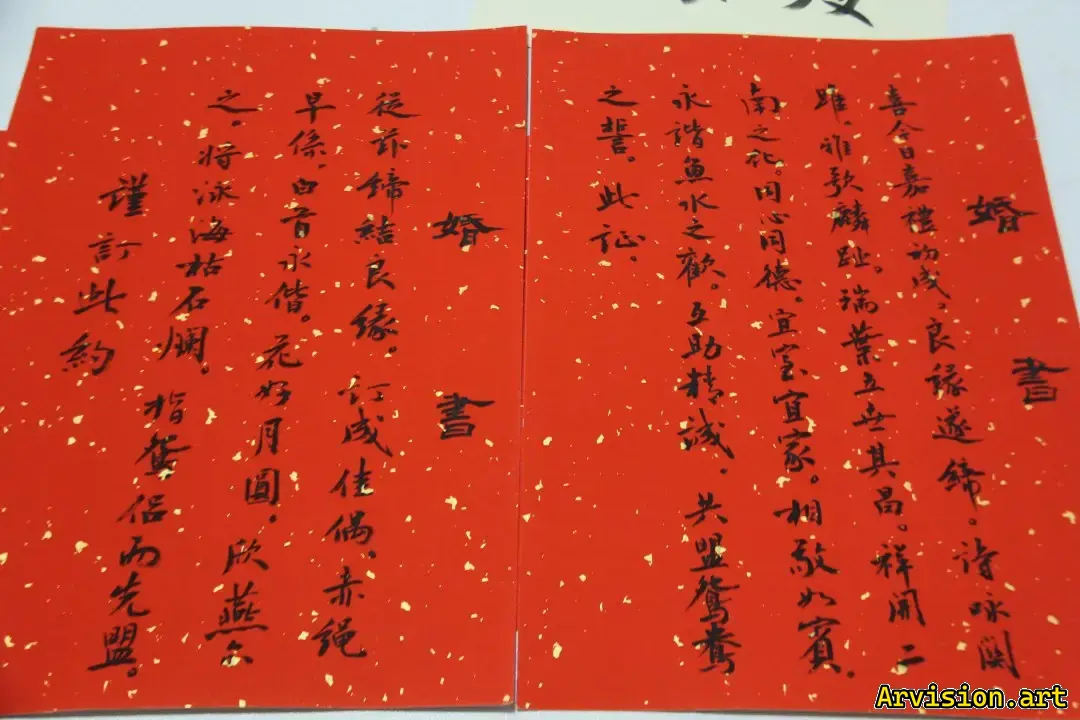 婚書
喜今日嘉禮初成,良緣遂締。詩咏關
雎,雅歌麟趾。瑞葉五世其昌。祥開二
南之化。同心同德。宜室宜家。相敬如賓。
永諧魚水之歡。互助精誠。共盟鴛鴦
之誓。此证。
婚書
從茲締結良緣。订成佳偶、赤繩
早係。白首永偕。花好月圓。欣燕尒
之。将泳海枯石爛。指鴛侣而先盟。
謹訂此約
Arvision.art